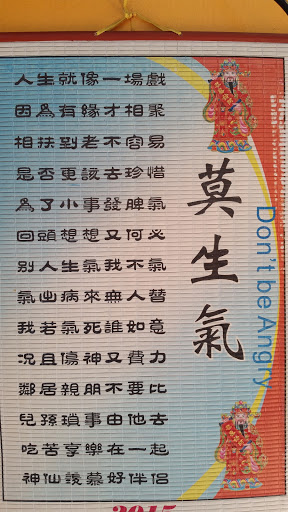 人生就像一場戲
因為有緣才相聚
相扶到老不容易
是否更該去珍惜
為了小事發脾氣
回頭想想又何必
別人生氣我不氣
氣出病來無人替
我若氣死誰如意
況且傷神又費力
鄰居親朋不要比
兒孫瑣事由他去
吃苦享樂在一起
神仙羨慕好伴侶
莫生氣
Don't be Angry
2015